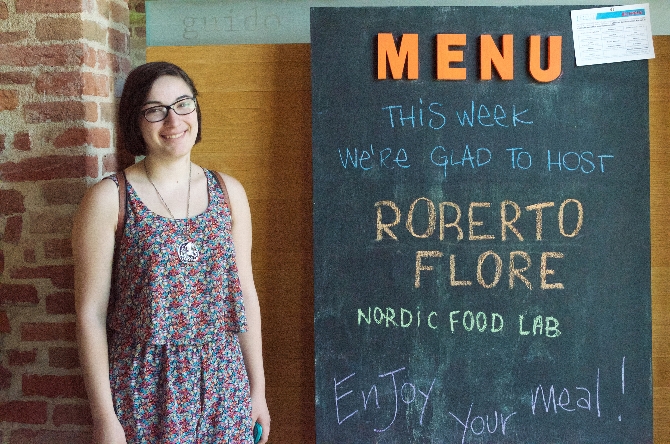 guide
MENU
THIS WEEK
WE'RE GLAD TO HOST
ROBERTO
FLORE
NORDIC FOOD LAB
ENJOY your meal!